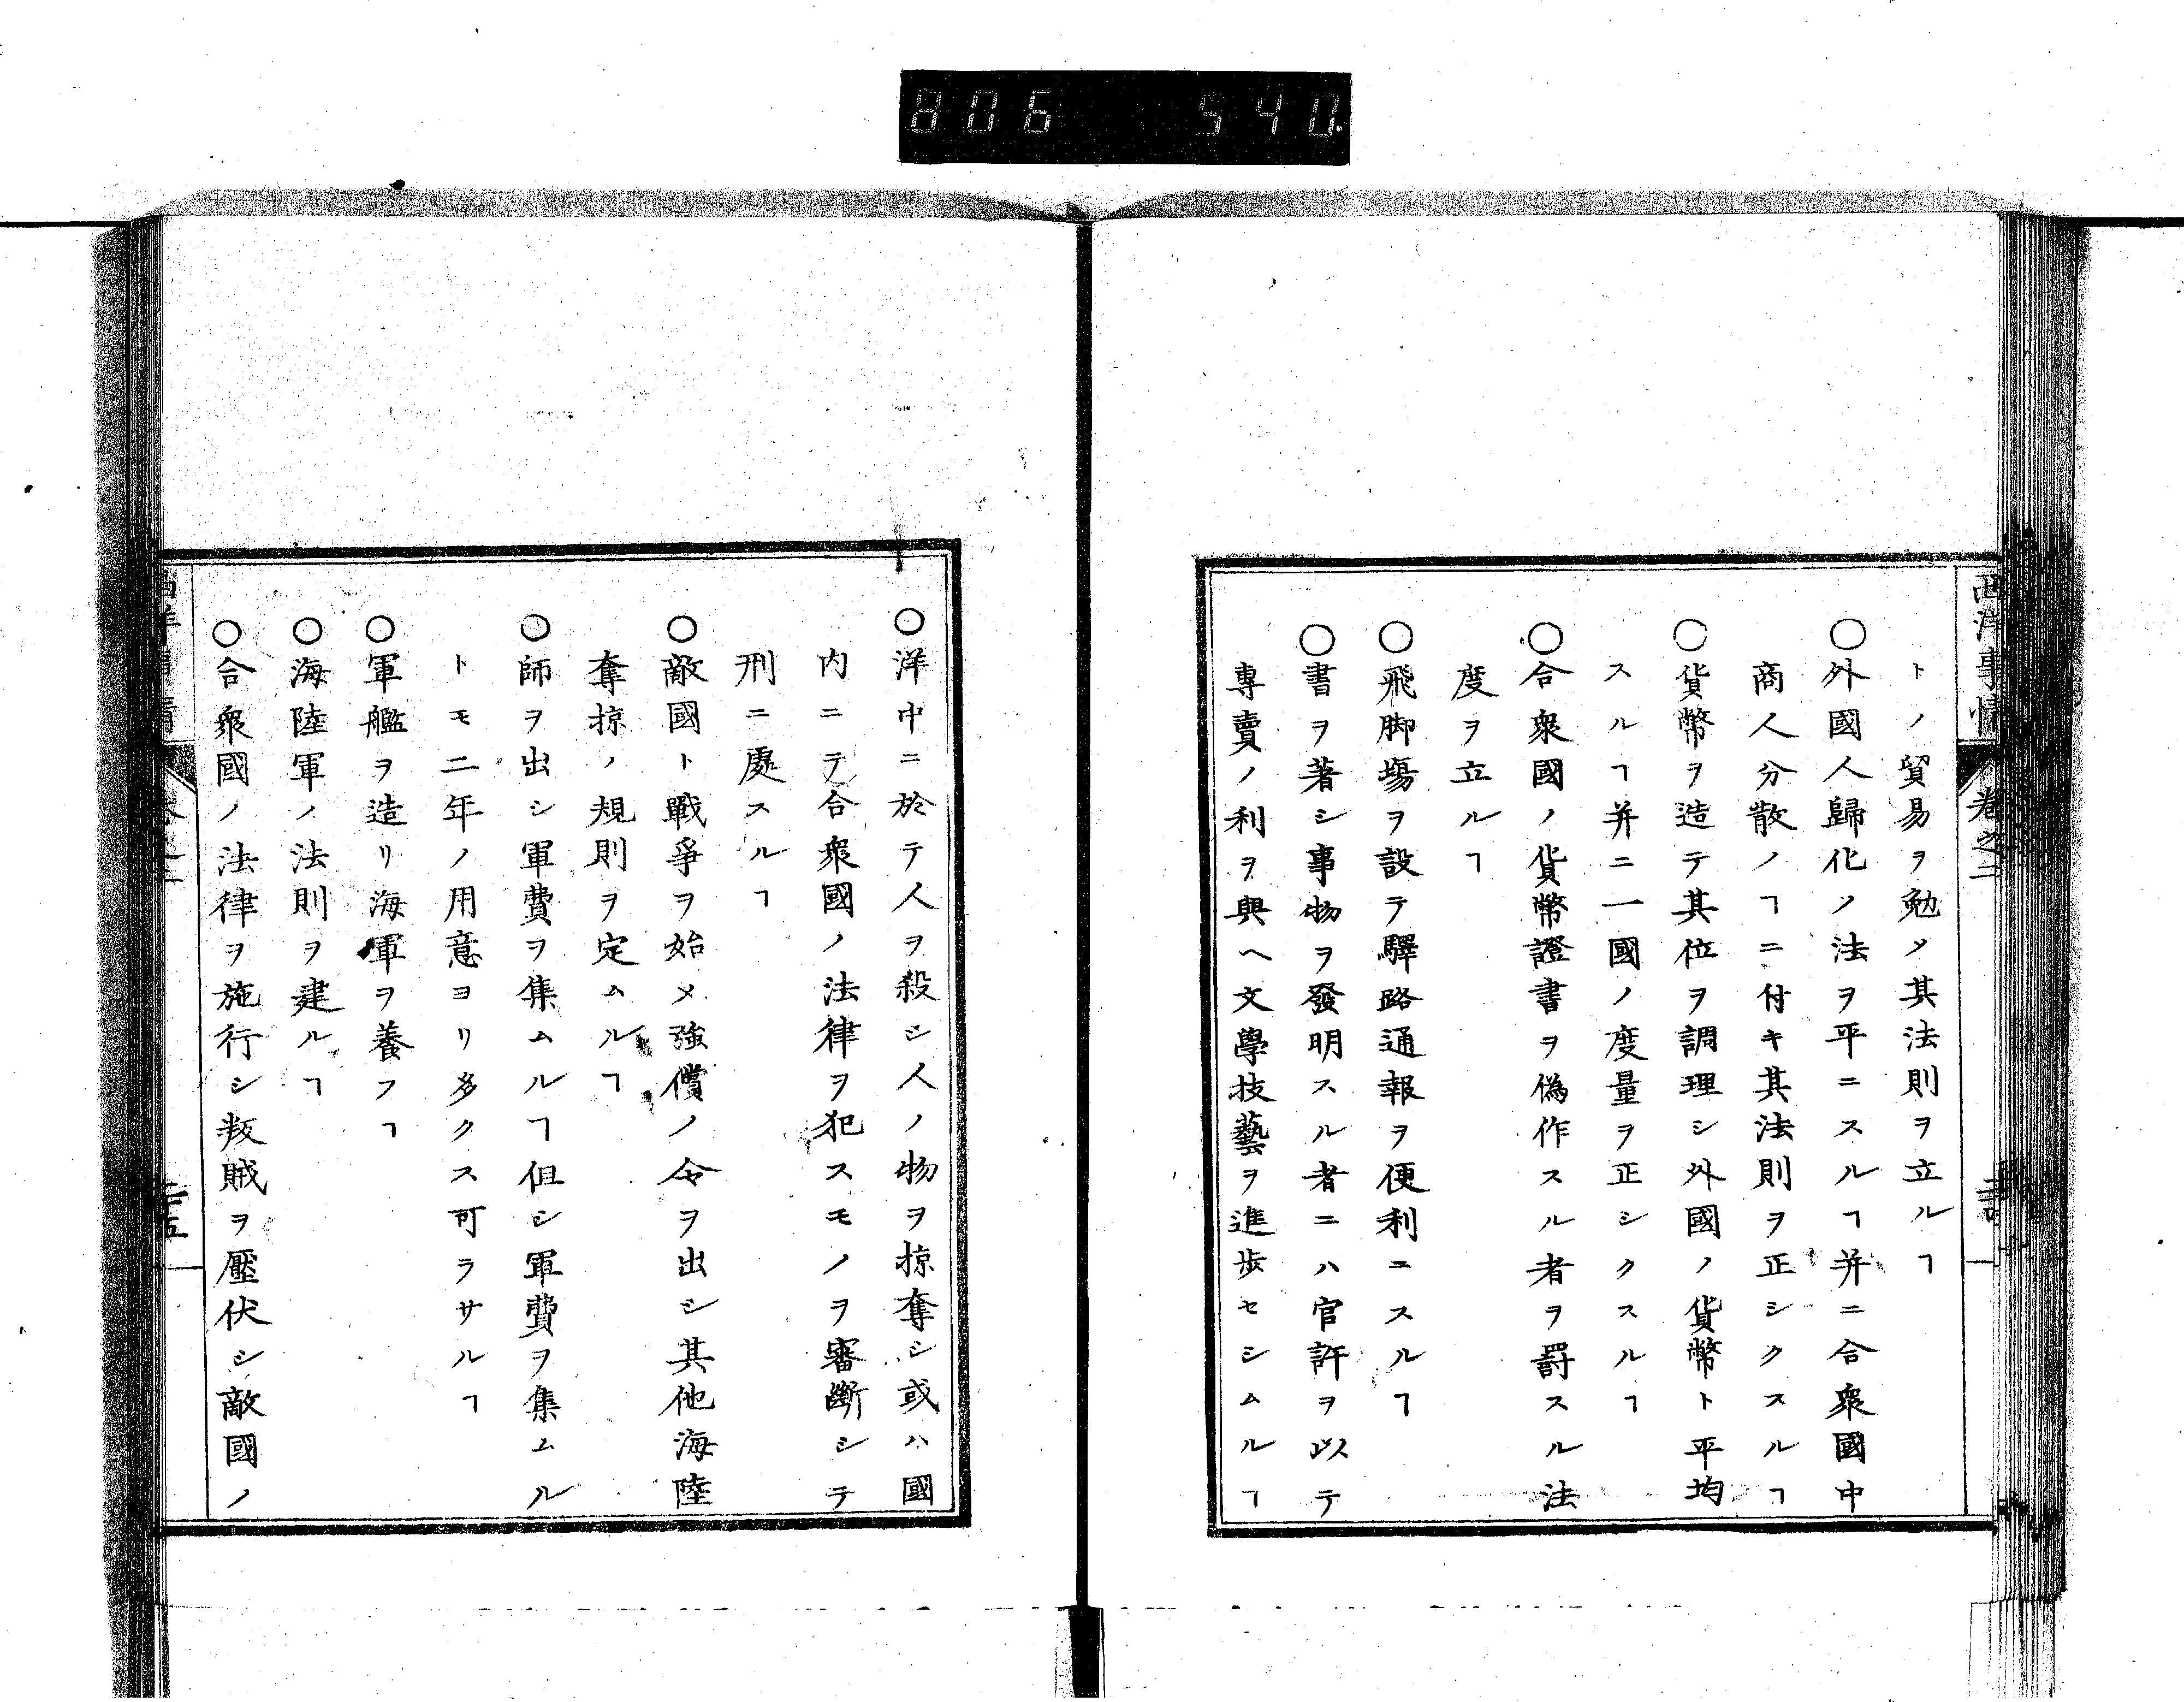 806 540.
西洋事情 卷之二
トノ貿易ヲ勉メ其法則ヲ立ルヿ
○外國人歸化ノ法ヲ平ニスルヿ并ニ合衆國中
商人分散ノヿニ付キ其法則ヲ正シクスルヿ
○貨幣ヲ造テ其位ヲ調理シ外國ノ貨幣ト平均
スルヿ并ニ一國ノ度量ヲ正シクスルヿ
○合衆國ノ貨幣證書ヲ偽作スル者ヲ罸スル法
度ヲ立ルヿ
○飛脚塲ヲ設テ驛路通報ヲ便利ニスルヿ
○書ヲ著シ事物ヲ發明スル者ニハ官許ヲ以テ
專賣ノ利ヲ與ヘ文學技藝ヲ進歩セシムルヿ
○洋中ニ於テ人ヲ殺シ人ノ物ヲ掠奪シ或ハ國
内ニテ合衆國ノ法律ヲ犯スモノヲ審斷シテ
刑ニ處スルヿ
○敵國ト戰爭ヲ始メ強償ノ令ヲ出シ其他海陸
奪掠ノ規則ヲ定ムルヿ
○師ヲ出シ軍費ヲ集ムルヿ但シ軍費ヲ集ムル
トモ二年ノ用意ヨリ多クス可ラサルヿ
○軍艦ヲ造リ海軍ヲ養フヿ
○海陸軍ノ法則ヲ建ルヿ
○合衆國ノ法律ヲ施行シ叛賊ヲ壓伏シ敵國ノ